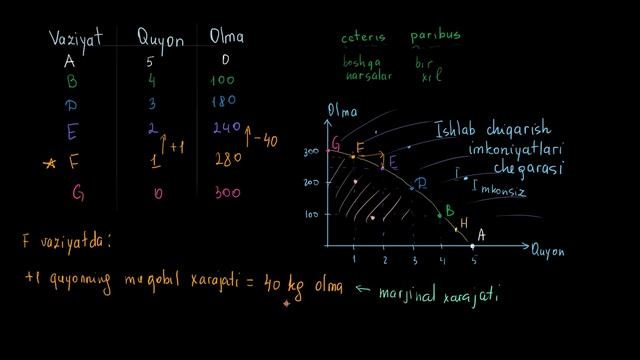 Vaziyat Quyon Olma
A 5 0
B 4 100
D 3 180
E 2 240
+1 -40
* F 1 280
G 0 300
ceteris paribus
boshqa bir
narsalar xil
Olma
Ishlab chiqarish
imkoniyatlari
chegarasi
Imkonsiz
300
200
100
G
F
E
D
B
H
A
1 2 3 4 5
Quyon
F vaziyatda:
+1 quyonning muqobil xarajati = 40 kg olma ← marjinal xarajati